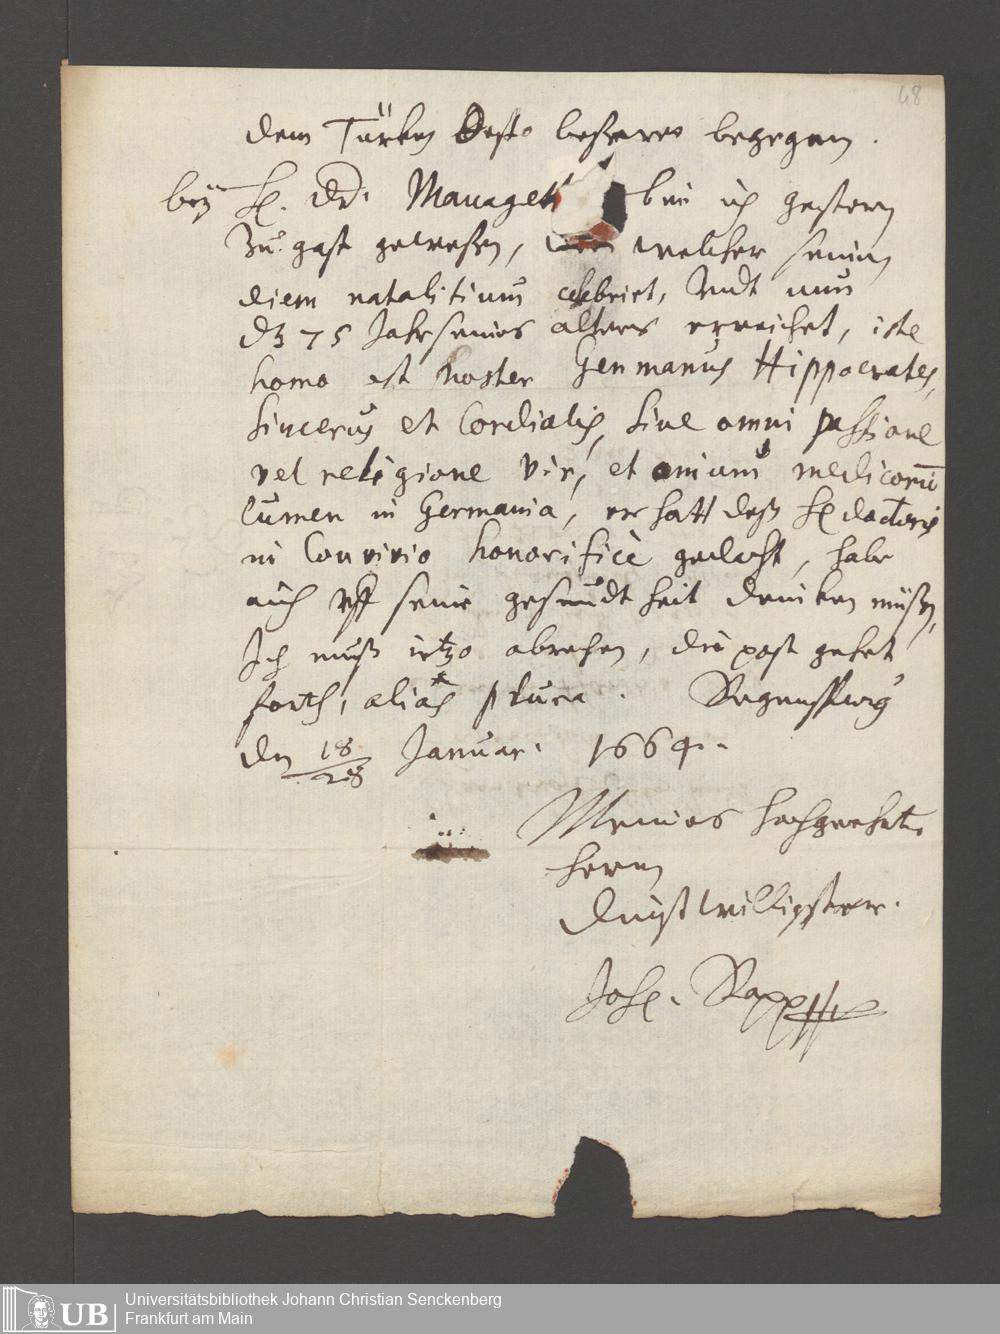 48
dem Türken desto beßeres begegen.
bey H. Dr. Managett bin ich gestern
Zu gast geweßen, welcher seinen
diem natalitium celebriet, Undt nun
dz 75 Jahr seines alters erreichet, iste
homo est noster Germanus Hippocrates,
sincerus et Cordialis, sine omni passione
vel religione vir, et omium medicorū
lumen in Germania, er hatt deß H doctoris
in Convivio honorificè gedacht, habe
auch uff seine gesundtheit drincken müßen,
Ich muß ietzo abrechen, die post gehet
forth, alias plura. Regenspurg
den 18/28 Januar. 1664.
Meines hochgeehrten
herrn
Dienstwilligster.
Joh. Rapp
UB
Universitätsbibliothek Johann Christian Senckenberg
Frankfurt am Main